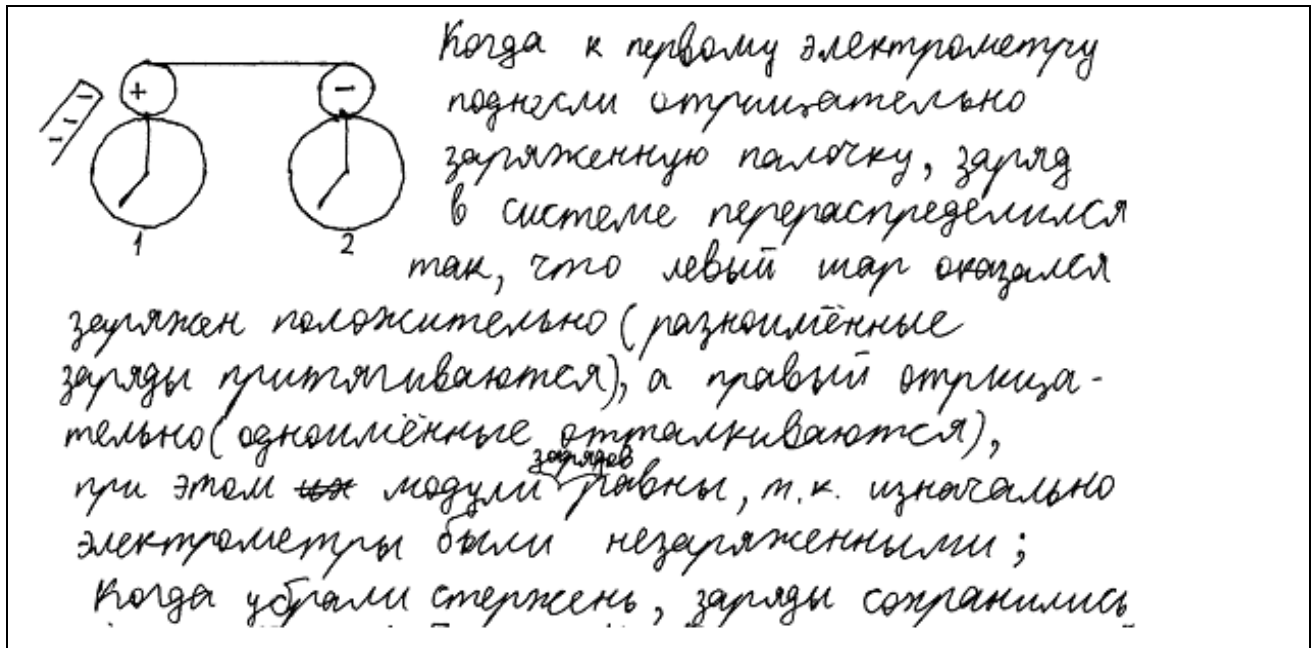 Когда к первому электрометру
поднесли отрицательно
заряженную палочку, заряд
в системе перераспределился
так, что левый шар оказался
заряжен положительно (разноимённые
заряды притягиваются), а правый отрица-
тельно (одноимённые отталкиваются),
при этом их модули зарядов равны, т.к. изначально
электрометры были незаряженными;
Когда убрали стержень, заряды сохранились
+
-
-
-
-
1
2